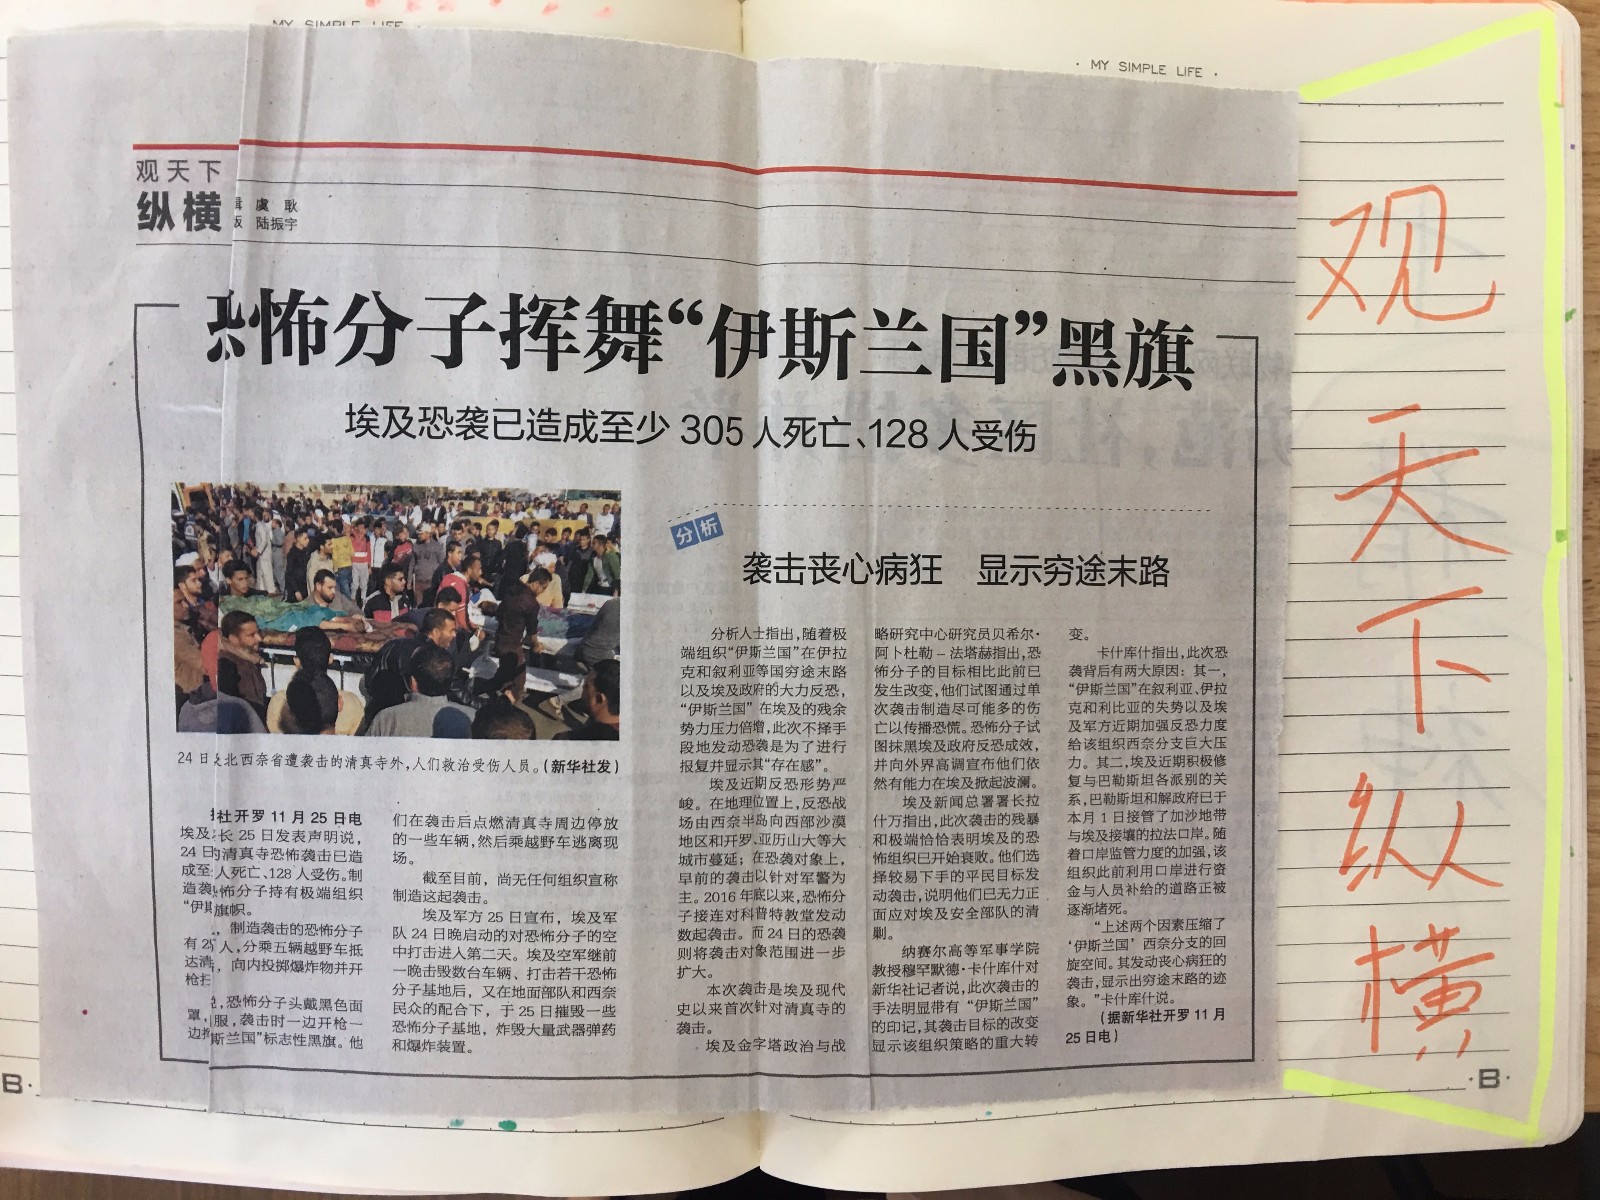 MY SIMPLE LIFE
· MY SIMPLE LIFE ·
观天下
纵横
虞 耿
陆振宇
恐怖分子挥舞“伊斯兰国”黑旗
埃及恐袭已造成至少 305 人死亡、128 人受伤
24 日 北西奈省遭袭击的清真寺外，人们救治受伤人员。（新华社发）
社开罗 11 月 25 日电
埃及 长 25 日发表声明说，
24 日 的清真寺恐怖袭击已造
成至 人死亡、128 人受伤。制
造袭 怖分子持有极端组织
“伊 旗帜。
，制造袭击的恐怖分子
有 2 人，分乘五辆越野车抵
达清 ，向内投掷爆炸物并开
枪扫
，恐怖分子头戴黑色面
罩， 服，袭击时一边开枪一
边 斯兰国”标志性黑旗。他
们在袭击后点燃清真寺周边停放
的一些车辆，然后乘越野车逃离现
场。
截至目前，尚无任何组织宣称
制造这起袭击。
埃及军方 25 日宣布，埃及军
队 24 日晚启动的对恐怖分子的空
中打击进入第二天。埃及空军继前
一晚击毁数台车辆、打击若干恐怖
分子基地后，又在地面部队和西奈
民众的配合下，于 25 日摧毁一些
恐怖分子基地，炸毁大量武器弹药
和爆炸装置。
分析
袭击丧心病狂 显示穷途末路
分析人士指出，随着极
端组织“伊斯兰国”在伊拉
克和叙利亚等国穷途末路
以及埃及政府的大力反恐，
“伊斯兰国”在埃及的残余
势力压力倍增，此次不择手
段地发动恐袭是为了进行
报复并显示其“存在感”。
埃及近期反恐形势严
峻。在地理位置上，反恐战
场由西奈半岛向西部沙漠
地区和开罗、亚历山大等大
城市蔓延；在恐袭对象上，
早前的袭击以针对军警为
主。2016 年底以来，恐怖分
子接连对科普特教堂发动
数起袭击。而 24 日的恐袭
则将袭击对象范围进一步
扩大。
本次袭击是埃及现代
史以来首次针对清真寺的
袭击。
埃及金字塔政治与战
略研究中心研究员贝希尔·
阿卜杜勒－法塔赫指出，恐
怖分子的目标相比此前已
发生改变，他们试图通过单
次袭击制造尽可能多的伤
亡以传播恐慌。恐怖分子试
图抹黑埃及政府反恐成效，
并向外界高调宣布他们依
然有能力在埃及掀起波澜。
埃及新闻总署署长拉
什万指出，此次袭击的残暴
和极端恰恰表明埃及的恐
怖组织已开始衰败。他们选
择较易下手的平民目标发
动袭击，说明他们已无力正
面应对埃及安全部队的清
剿。
纳赛尔高等军事学院
教授穆罕默德·卡什库什对
新华社记者说，此次袭击的
手法明显带有“伊斯兰国”
的印记，其袭击目标的改变
显示该组织策略的重大转
变。
卡什库什指出，此次恐
袭背后有两大原因：其一，
“伊斯兰国”在叙利亚、伊拉
克和利比亚的失势以及埃
及军方近期加强反恐力度
给该组织西奈分支巨大压
力。其二，埃及近期积极修
复与巴勒斯坦各派别的关
系，巴勒斯坦和解政府已于
本月 1 日接管了加沙地带
与埃及接壤的拉法口岸。随
着口岸监管力度的加强，该
组织此前利用口岸进行资
金与人员补给的道路正被
逐渐堵死。
“上述两个因素压缩了
‘伊斯兰国’西奈分支的回
旋空间。其发动丧心病狂的
袭击，显示出穷途末路的迹
象。”卡什库什说。
（据新华社开罗 11 月
25 日电）
观天下纵横
B·
·B·